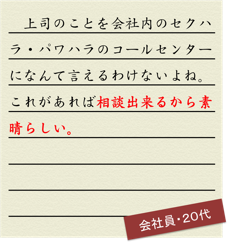 上司のことを会社内のセクハ
ラ・パワハラのコールセンター
になんて言えるわけないよね。
これがあれば相談出来るから素
晴らしい。
会社員・20代